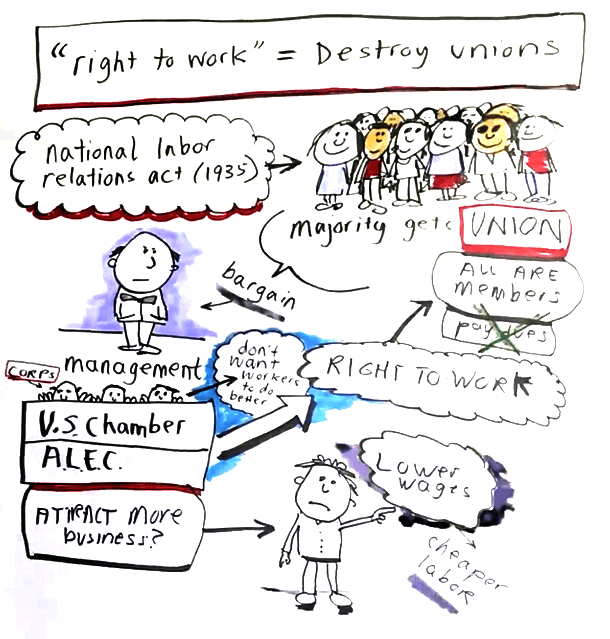 "right to work" = Destroy unions
national labor
relations act (1935)
majority gets
UNION
ALL ARE
members
pay dues
bargain
management
don't
want
workers
to do
better
RIGHT TO WORK
CORPS
U.S. Chamber
A.L.E.C.
ATTRACT more
business?
Lower
wages
cheaper
labor